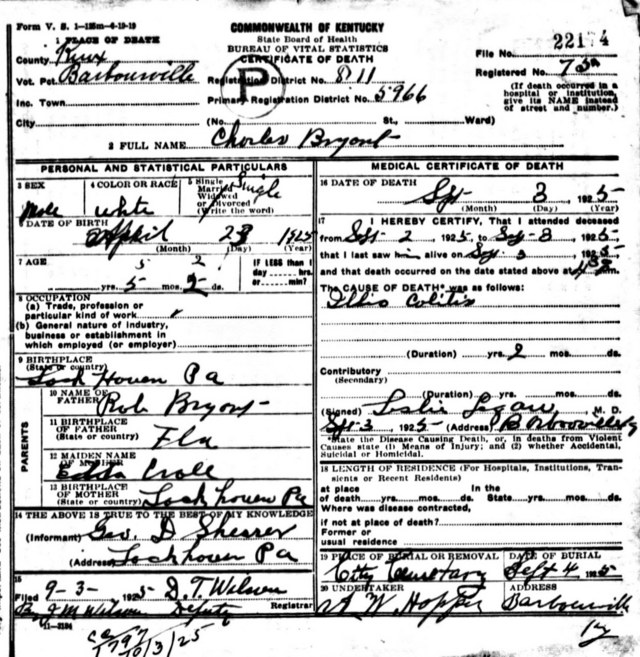 Form V. S. 1-125m-6-19-19
COMMONWEALTH OF KENTUCKY
State Board of Health
BUREAU OF VITAL STATISTICS
CERTIFICATE OF DEATH
1 PLACE OF DEATH
County Knox
Vot. Pct. Barbourville
Inc. Town
City
P
Registration District No. 811
Primary Registration District No. 5966
(No. St., Ward)
File No. 22174
Registered No. 75
(If death occurred in a
hospital or institution,
give its NAME instead
of street and number.)
2 FULL NAME Charles Bryant
PERSONAL AND STATISTICAL PARTICULARS
3 SEX
Male
4 COLOR OR RACE
white
5 Single
Married
Widowed
or Divorced
(Write the word)
Single
6 DATE OF BIRTH
April 28 1925
(Month) (Day) (Year)
7 AGE
5 2
yrs. 5 mos. ds.
IF LESS than 1
day hrs.
or min?
8 OCCUPATION
(a) Trade, profession or
particular kind of work
(b) General nature of industry,
business or establishment in
which employed (or employer)
9 BIRTHPLACE
(State or country)
Lock Haven Pa
PARENTS
10 NAME OF
FATHER Rob Bryant
11 BIRTHPLACE
OF FATHER
(State or country) Fla
12 MAIDEN NAME
OF MOTHER
Edda Croll
13 BIRTHPLACE
OF MOTHER
(State or country) Lock haven Pa
14 THE ABOVE IS TRUE TO THE BEST OF MY KNOWLEDGE
(Informant) Geo. D Sherrer
(Address) Lock haven Pa
15
Filed 9-3- 1925 D. T. Wilson
Registrar
By J M Wilson Deputy
11-3184
1797
10/3/25
MEDICAL CERTIFICATE OF DEATH
16 DATE OF DEATH
Sept 3 1925
(Month) (Day) (Year)
17 I HEREBY CERTIFY, That I attended deceased
from Sept 2, 1925, to Sept 3, 1925
that I last saw him alive on Sept 3, 1925
and that death occurred on the date stated above at m.
The CAUSE OF DEATH* was as follows:
Illio Colitis
(Duration) yrs. 2 mos. ds.
Contributory
(Secondary)
(Duration) yrs. mos. ds.
(Signed) Leslie Logan, M. D.
Sept-3, 1925 (Address) Barbourville Ky
*State the Disease Causing Death, or, in deaths from Violent
Causes state (1) Means of Injury; and (2) whether Accidental,
Suicidal or Homicidal.
18 LENGTH OF RESIDENCE (For Hospitals, Institutions, Tran-
sients or Recent Residents)
at place In the
of death yrs. mos. ds. State yrs. mos. ds.
Where was disease contracted,
if not at place of death?
Former or
usual residence
19 PLACE OF BURIAL OR REMOVAL
City Cemetary
DATE OF BURIAL
Sept 4, 1925
20 UNDERTAKER
A. W. Hopper
ADDRESS
Barbourville
Ky